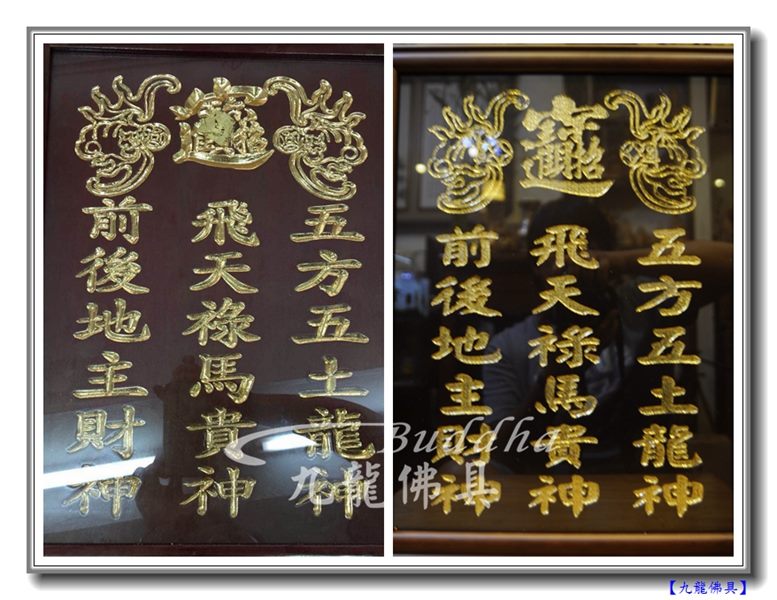 招財進寶
五方五土龍神
飛天祿馬貴神
前後地主財神
招財進寶
五方五土龍神
飛天祿馬貴神
前後地主財神
Buddha
九龍佛具
【九龍佛具】